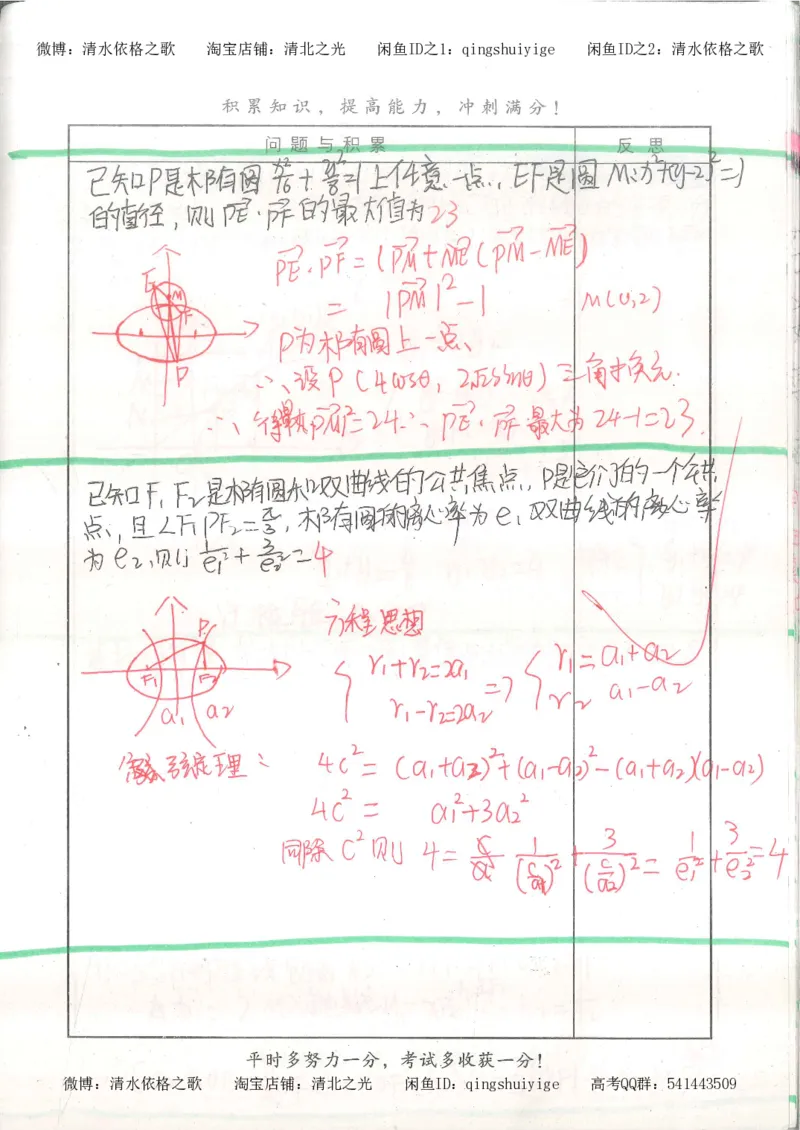 微博：清水依格之歌 淘宝店铺：清北之光 闲鱼ID之1：qingshuiyige 闲鱼ID之2：清水依格之歌
积累知识，提高能力，冲刺满分！
问题与积累 反思
已知P是椭圆x²/16+y²/8=1上任意一点，EF是圆M:x²+(y-2)²=1
的直径，则PE·PF的最大值为23
PE·PF=(PM+ME(PM-ME)
=|PM|²-1 M(0,2)
E
M
F
P
P为椭圆上一点、
∴设P(4cosθ, 2√2sinθ) 三角换元.
∴ PM²=24∴ PE·PF最大为24-1=23.
已知F₁F₂是椭圆和双曲线的公共焦点，P是它们的一个公共
点，且∠F₁PF₂=π/3，椭圆的离心率为e₁双曲线的离心率
为e₂，则1/e₁²+3/e₂²=4
方程思想
P
F₁ F₂
a₁ a₂
r₁+r₂=2a₁ r₁=a₁+a₂
r₁-r₂=2a₂ => r₂ a₁-a₂
余弦定理： 4c²=(a₁+a₂)²+(a₁-a₂)²-(a₁+a₂)(a₁-a₂)
4c²= a₁²+3a₂²
同除c²则 4= 1/(c/a₁)²+3/(c/a₂)²=1/e₁²+3/e₂²=4
平时多努力一分，考试多收获一分！
微博：清水依格之歌 淘宝店铺：清北之光 闲鱼ID：qingshuiyige 高考QQ群：541443509